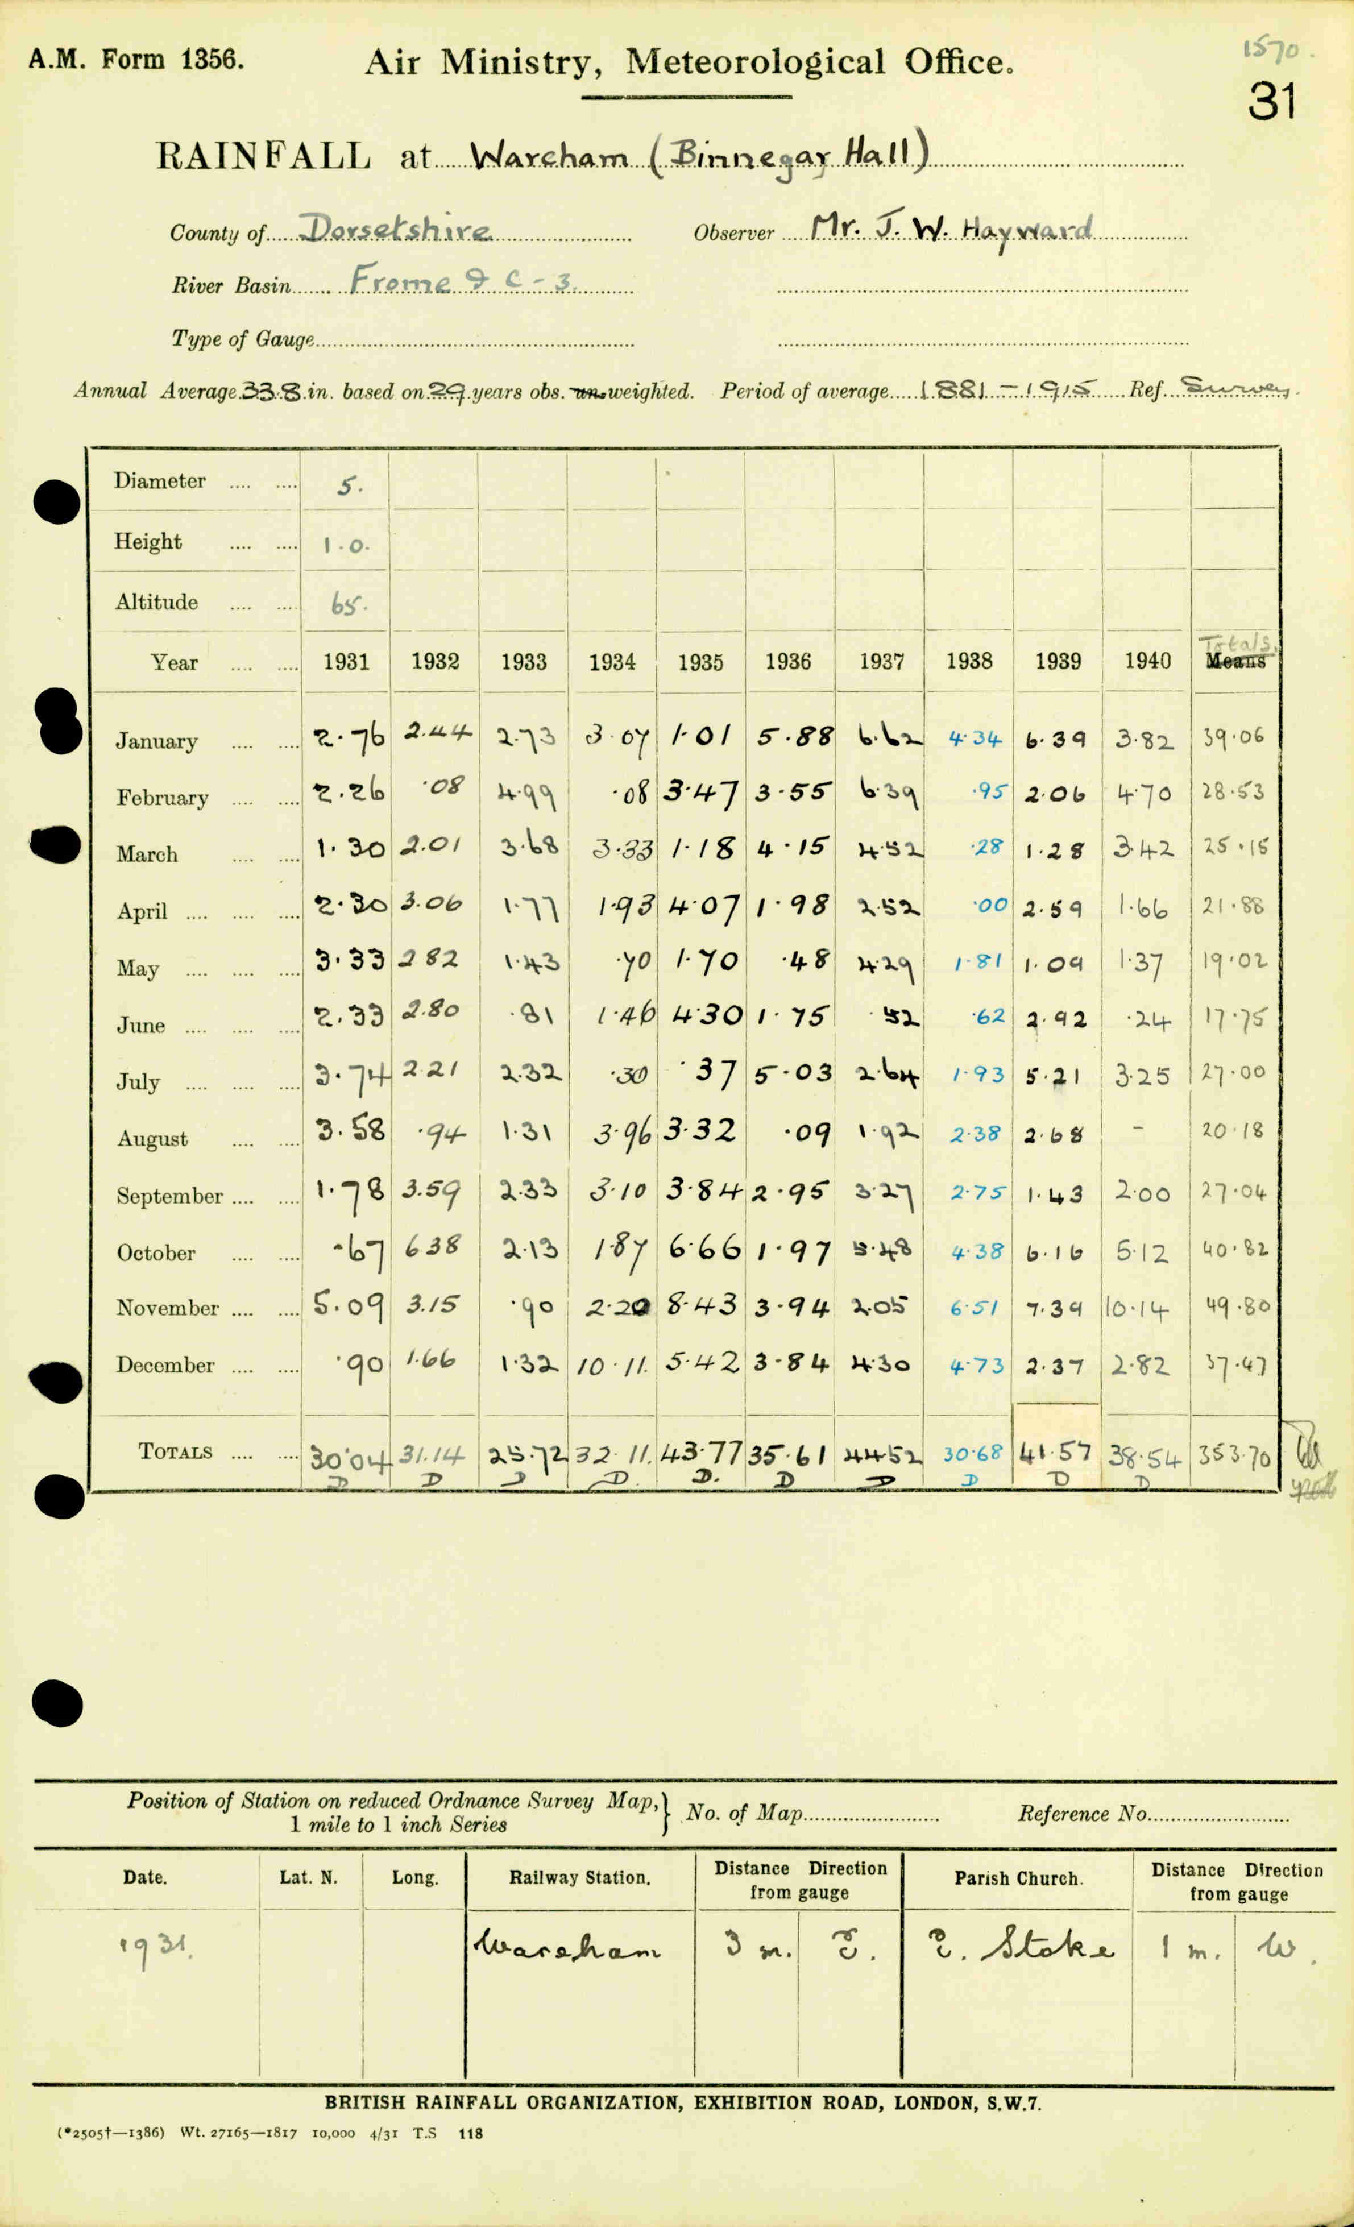 1570.
A.M. Form 1356. Air Ministry, Meteorological Office.
31
RAINFALL at Wareham (Binnegar Hall)
County of Dorsetshire Observer Mr. J. W. Hayward
River Basin Frome & C - 3.
Type of Gauge
Annual Average 33.8 in. based on 29 years obs. un-weighted. Period of average 1881 - 1915 Ref. Survey.
Diameter 5.
Height 1.0.
Altitude 65.
Totals.
Year 1931 1932 1933 1934 1935 1936 1937 1938 1939 1940 Means
January 2.76 2.44 2.73 3.07 1.01 5.88 6.62 4.34 6.39 3.82 39.06
February 2.26 .08 4.99 .08 3.47 3.55 6.39 .95 2.06 4.70 28.53
March 1.30 2.01 3.68 3.33 1.18 4.15 4.52 .28 1.28 3.42 25.15
April 2.30 3.06 1.77 1.93 4.07 1.98 2.52 .00 2.59 1.66 21.88
May 3.33 2.82 1.43 .70 1.70 .48 4.29 1.81 1.09 1.37 19.02
June 2.33 2.80 .81 1.46 4.30 1.75 .52 .62 2.92 .24 17.75
July 3.74 2.21 2.32 .30 .37 5.03 2.64 1.93 5.21 3.25 27.00
August 3.58 .94 1.31 3.96 3.32 .09 1.92 2.38 2.68 - 20.18
September 1.78 3.59 2.33 3.10 3.84 2.95 3.27 2.75 1.43 2.00 27.04
October .67 6.38 2.13 1.87 6.66 1.97 5.48 4.38 6.16 5.12 40.82
November 5.09 3.15 .90 2.20 8.43 3.94 2.05 6.51 7.39 10.14 49.80
December .90 1.66 1.32 10.11. 5.42 3.84 4.30 4.73 2.37 2.82 37.47
TOTALS 30.04 31.14 25.72 32.11. 43.77 35.61 44.52 30.68 41.57 38.54 353.70
D D D D. D. D D D D D
Position of Station on reduced Ordnance Survey Map, } No. of Map Reference No.
1 mile to 1 inch Series
Date. Lat. N. Long. Railway Station. Distance Direction from gauge Parish Church. Distance Direction from gauge
1931. Wareham 3 m. E. E. Stoke 1 m. W.
BRITISH RAINFALL ORGANIZATION, EXHIBITION ROAD, LONDON, S.W.7.
(*2505†—1386) Wt. 27165—1817 10,000 4/31 T.S 118